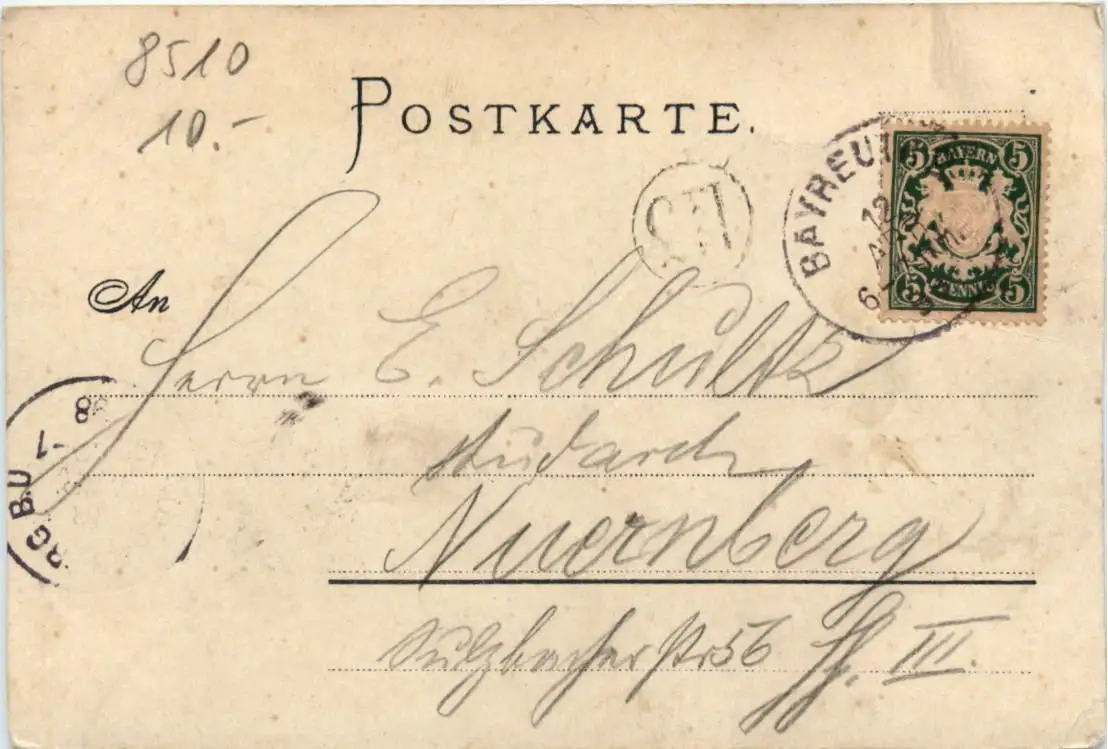 8510
10.-
POSTKARTE.
BAYREUT
5 BAYERN 5
5 PFENNIG 5
An
Herrn E. Schultz
stud arch
Nuernberg
Sulzbacherstr 56 III.
RG B.U
-7
98